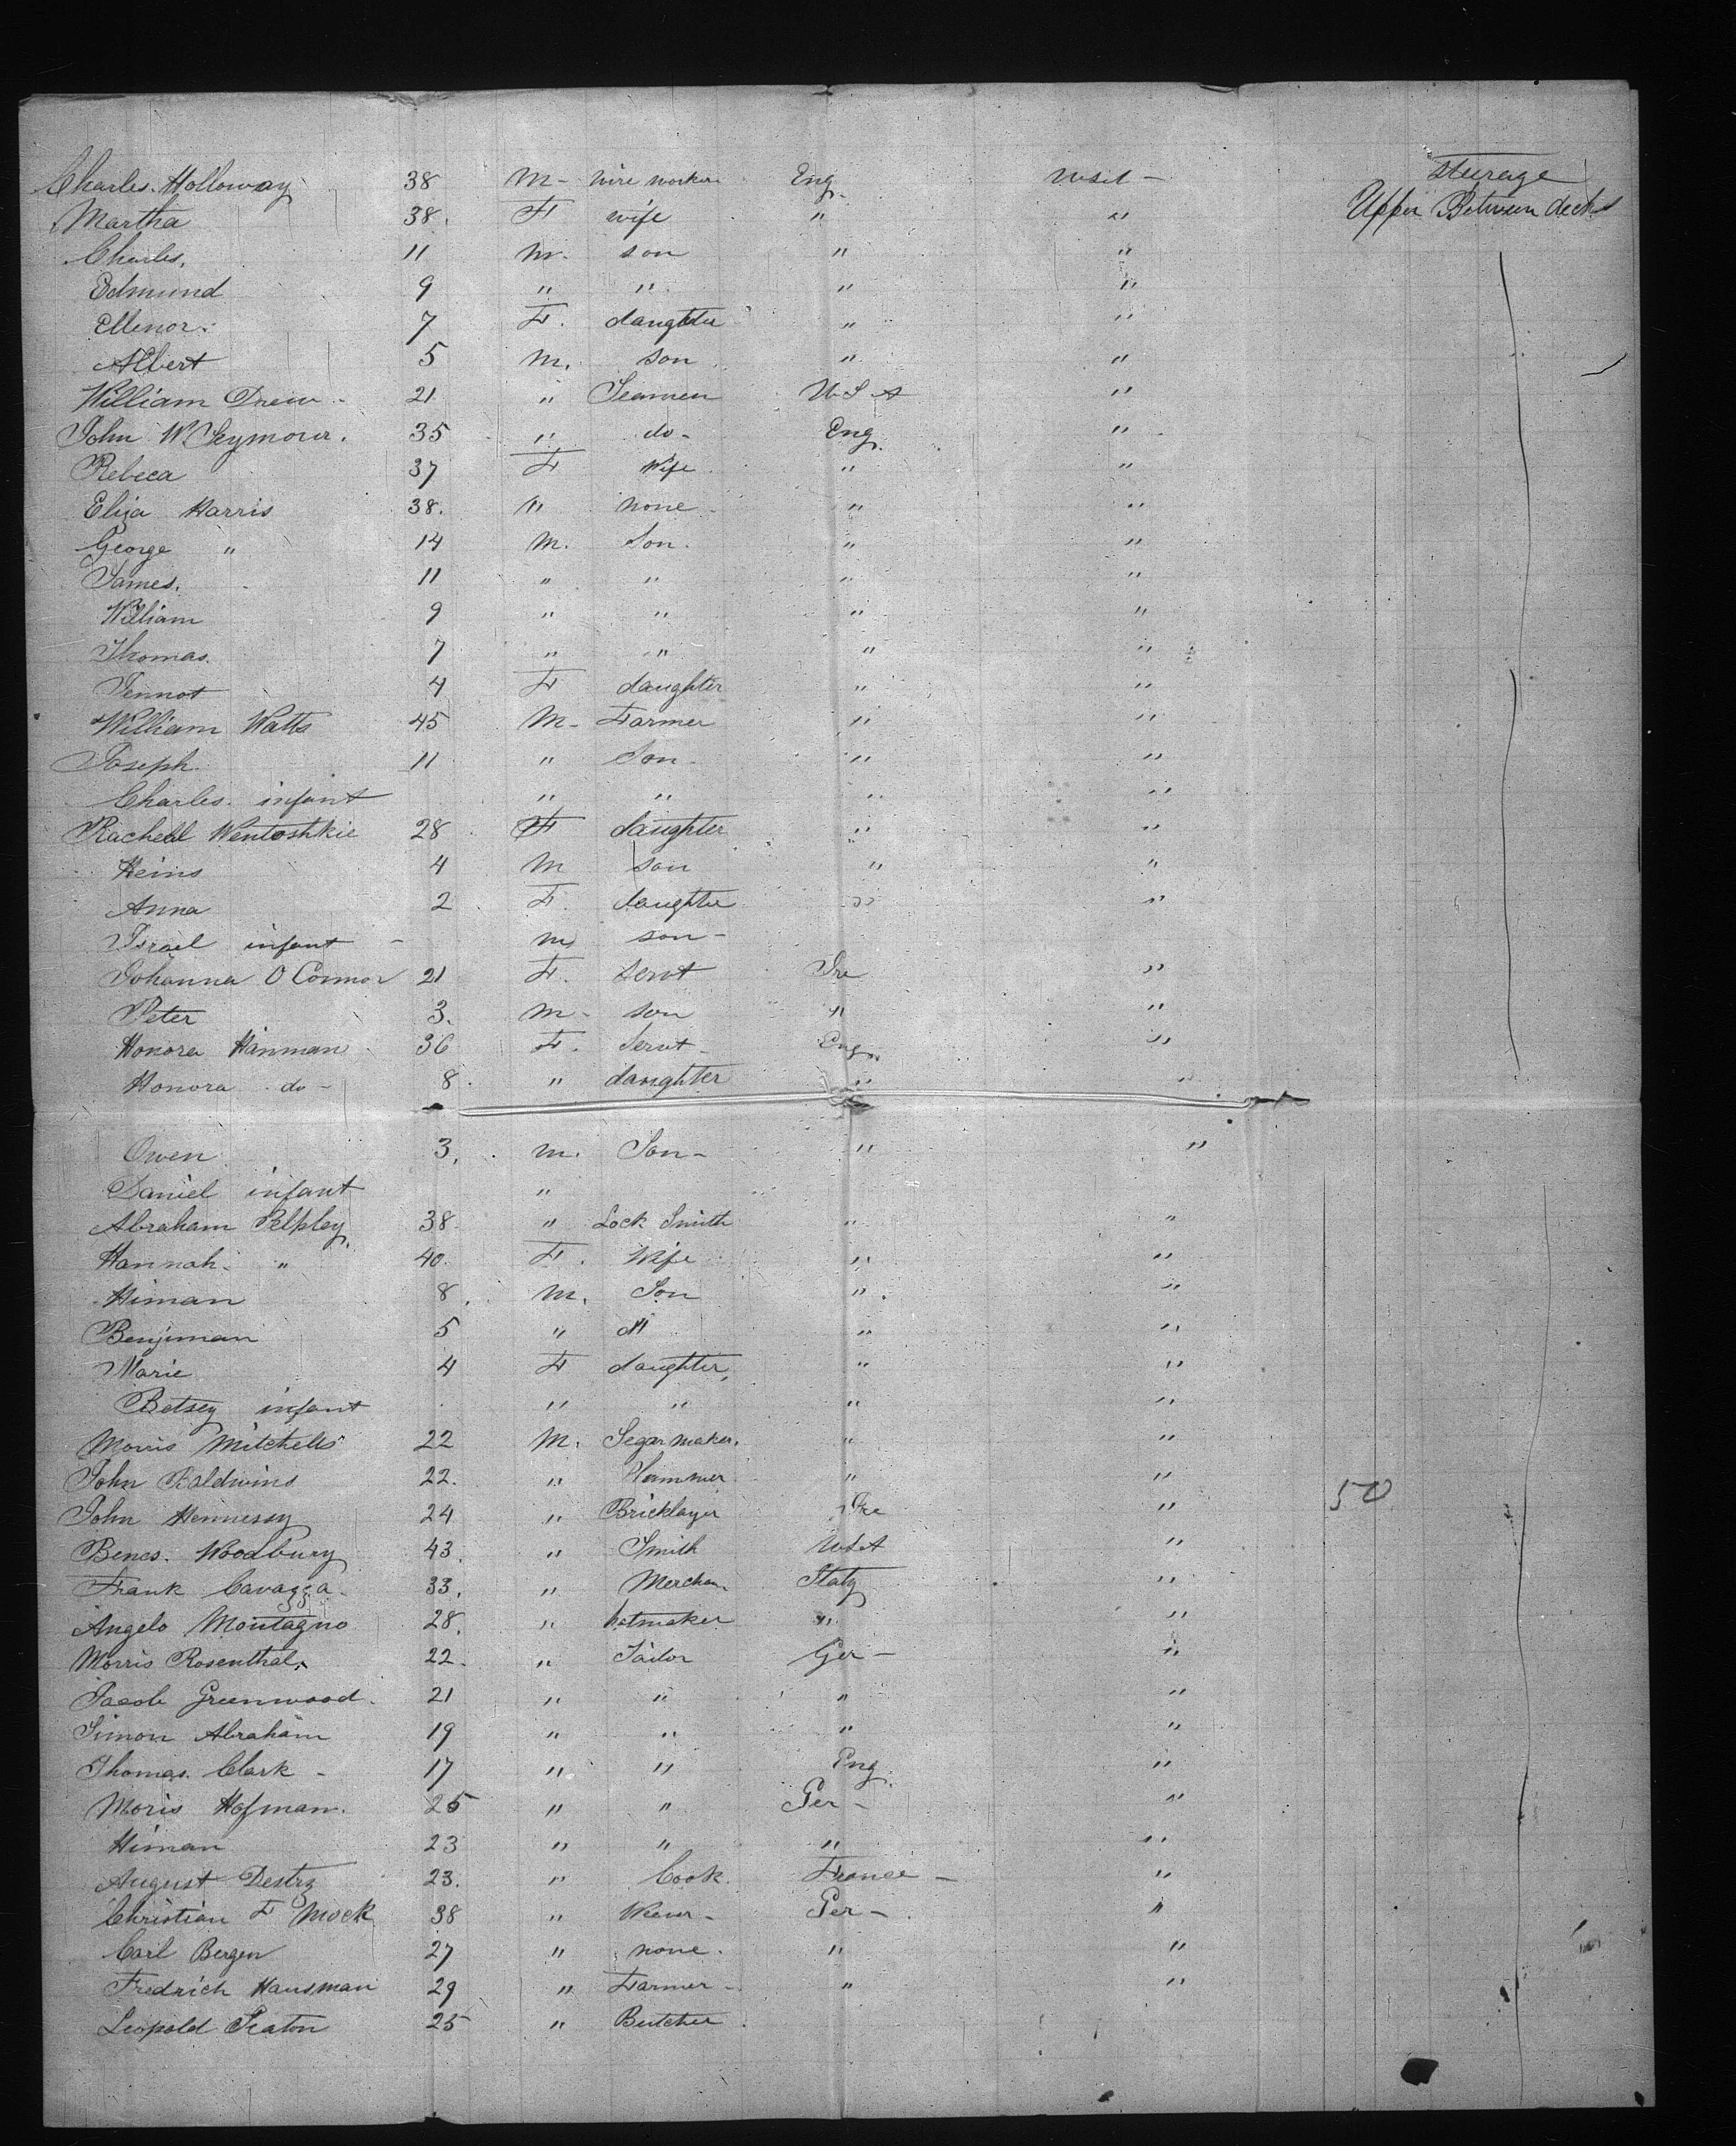 Charles Holloway 38 M- wire worker Eng. visit - Steerage
Martha 38. F wife " " Upper Between decks
Charles. 11 m. son " "
Edmund 9 " " " "
Ellenor. 7 F. daughter " "
Albert 5 m. son " "
William Drew - 21 " Seamen U S A "
John W. Seymour. 35 " do- Eng. "
Rebeca 37 F Wife " "
Eliza Harris 38. " none " "
George " 14 m. Son. " "
James. 11 " " " "
William 9 " " " "
Thomas. 7 " " " "
Jennot 4 F daughter " "
William Watts 45 M- Farmer " "
Joseph 11 " Son- " "
Charles. infant " " " "
Rachell Wentoshkie 28 F daughter " "
Heins 4 M son " "
Anna 2 F. daughter " "
Israel infant - m son -
Johanna O Connor 21 F. servt Ire "
Peter 3. m- son " "
Honora Hanman 36 F. Servt- Eng. "
Honora do- 8. " daughter " "
Owen 3. m. Son- " "
Daniel infant "
Abraham 38. " Lock Smith " "
Hannah- " 40. F. Wife " "
Himan 8. m. Son " "
Benjiman 5 " " "
Marie 4 F daughter, " "
Betsey infant " " " "
Morris Mitchells 22 M. Segar maker. " "
John Baldwins 22. " " "
John Hennessy 24 " Bricklayer Ire " 50
Benes. Woodbury 43. " Smith USA "
Frank Cavagga 33. " Merchan Italy "
Angelo Montagno 28. " hatmaker " "
Morris Rosenthal. 22. " Tailor Ger- "
Jacob Greenwood. 21 " " " "
Simon Abraham 19 " " " "
Thomas. Clark - 17 " " Eng. "
Moris Hofman. 25 " " Ger- "
Himan 23 " " " "
August 23. " Cook. France - "
Christian F Mock 38 " Weever- Ger- "
Carl Bergen 27 " none. " "
Fredrich Hausman 29 " Farmer- " "
Leopold Seaton 25 " Butcher.